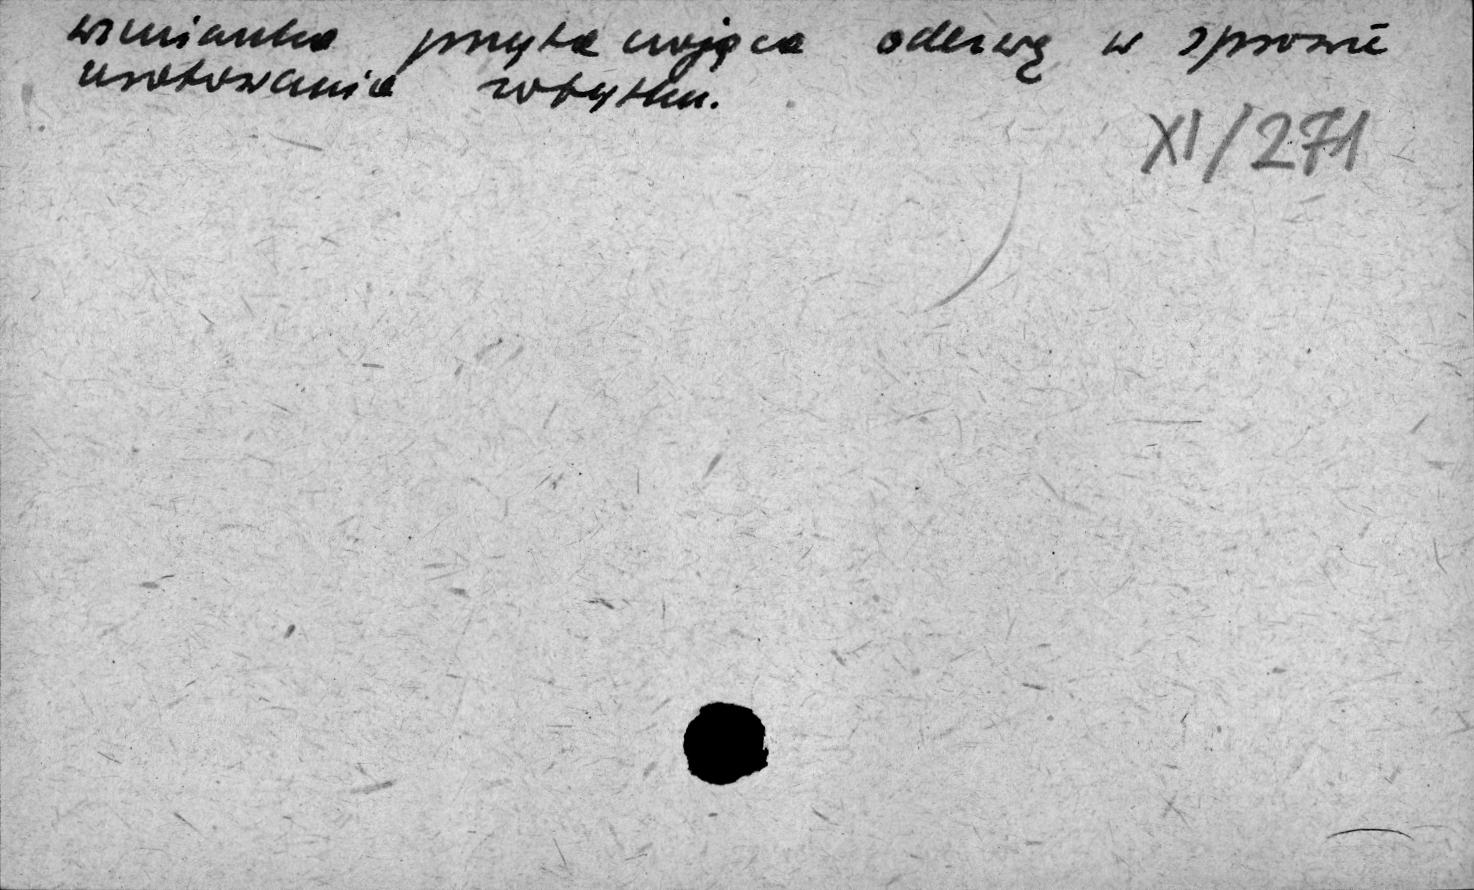 wzmianka przytaczająca odezwę w sprawie
uratowania zabytku.
XI/271